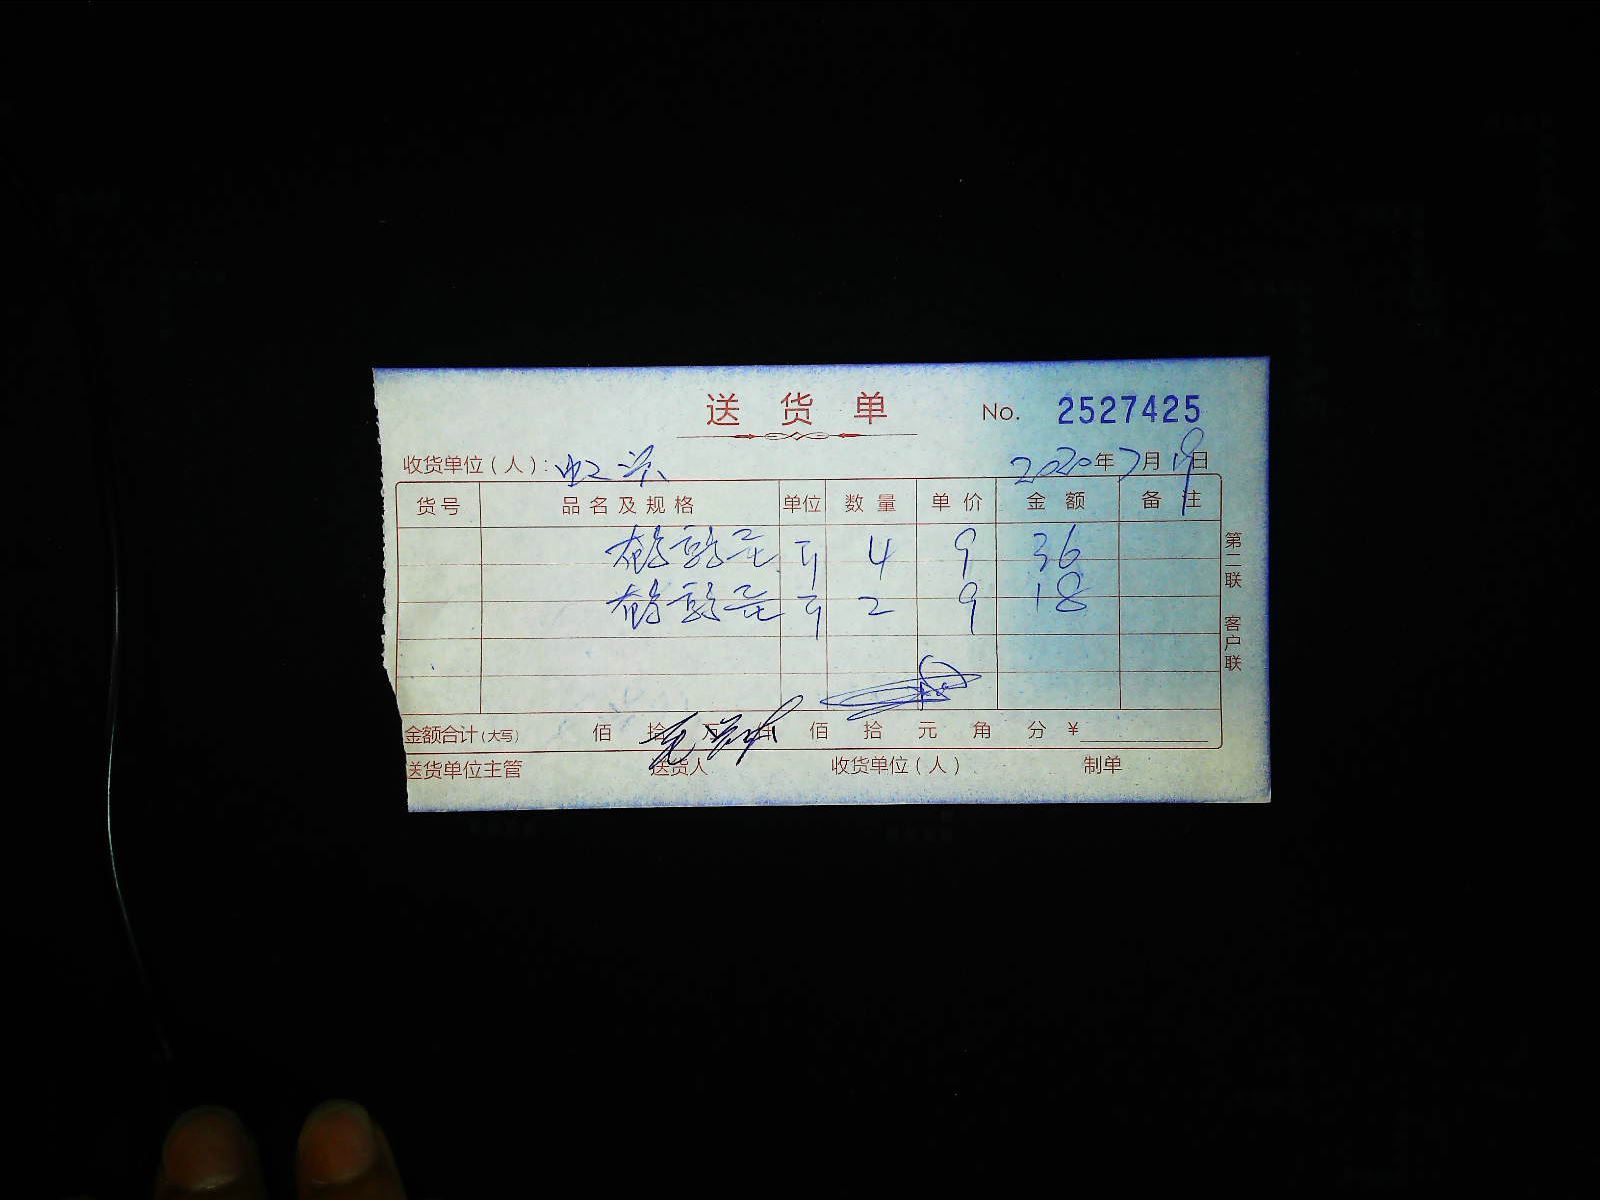 送货单 No. 2527425
收货单位（人）： 2020年7月19日
货号 品名及规格 单位 数量 单价 金额 备注
4 9 36
2 9 18
金额合计(大写) 佰 拾 万 仟 佰 拾 元 角 分 ¥
送货单位主管 送货人 收货单位（人） 制单
第二联 客户联